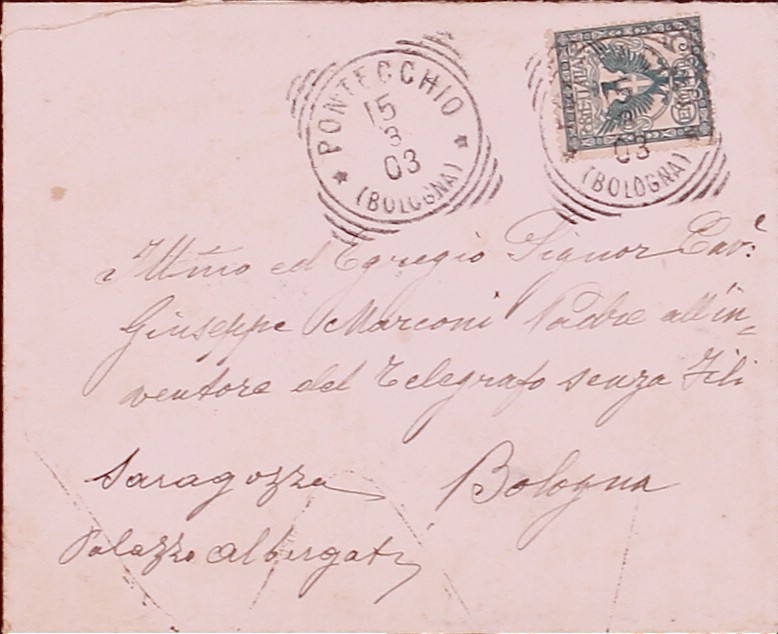 PONTECCHIO
15
3
03
(BOLOGNA)
POSTE ITALIANE
03
(BOLOGNA)
Illmo ed Egregio Signor Cav.e
Giuseppe Marconi Padre all'in=
ventore del Telegrafo senza Fili
Saragozza Bologna
Palazzo Albergati